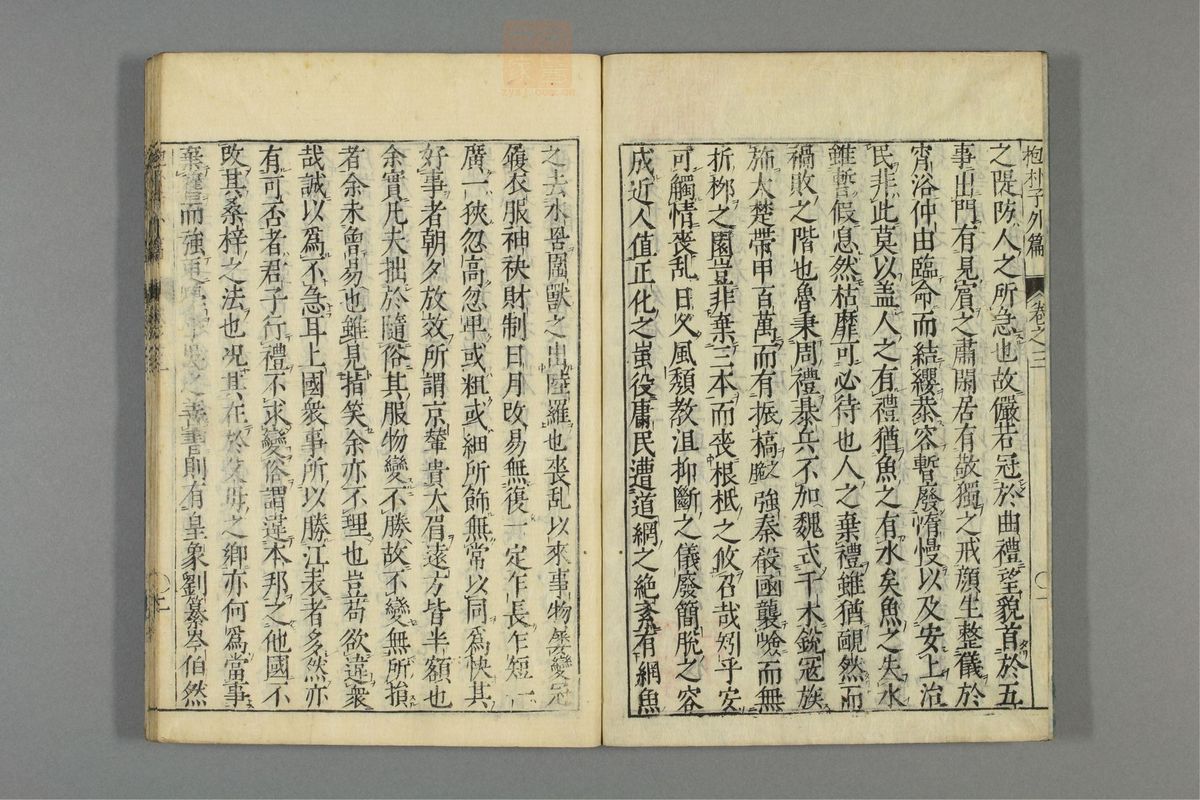 抱朴子外篇 卷之三
之隄防人之所急也故儼若冠於曲禮望貌首於五
事出門有見賓之肅閑居有敬獨之戒顔生整儀於
宵浴仲由臨命而結纓恭容暫廢惰慢以及安上治
民非此莫以盖人之有禮猶魚之有水矣魚之失水
雖暫假息然枯靡可必待也人之棄禮雖猶靦然而
禍敗之階也魯秉周禮暴兵不加魏式干木銳冦族
旆大楚帶甲百萬而有振槁之脆強秦殽凾襲嶮而無
折柳之園豈非棄三本而喪根柢之攸召哉矧乎安
可觸情喪乱日久風頹教沮抑斷之儀廢簡脫之容
成近人值正化之蚩役庸民遭道網之絶紊有網魚
之去水罟圍獸之出陸羅也喪乱以來事物屢變冠
履衣服袖袂財制日月改易無復一定乍長乍短一
廣一狹忽高忽卑或粗或細所飾無常以同爲快其
好事者朝夕放效所謂京輦貴大眉遠方皆半額也
余實凡夫拙於隨俗其服物變不勝故不變無所損
者余未曾易也雖見指笑余亦不理也豈苟欲違衆
哉誠以爲不急耳上國衆事所以勝江表者多然亦
有可否者君子行禮不求變俗謂違本邦之他國不
改其桑梓之法也况其在於父母之鄉亦何爲當事
棄舊而強更 之善書則有皇象劉纂岑伯然